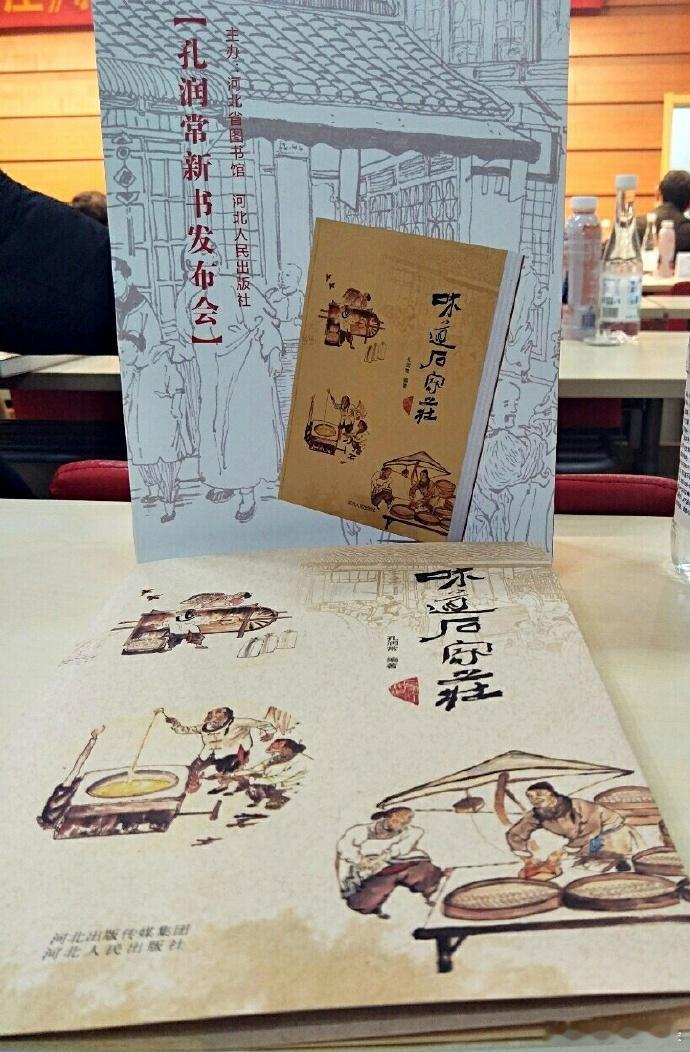 【孔润常新书发布会】
主办：河北省图书馆 河北人民出版社
味道石家莊
孔润常 编著
河北人民出版社
味道石家莊
孔润常 编著
河北出版传媒集团
河北人民出版社